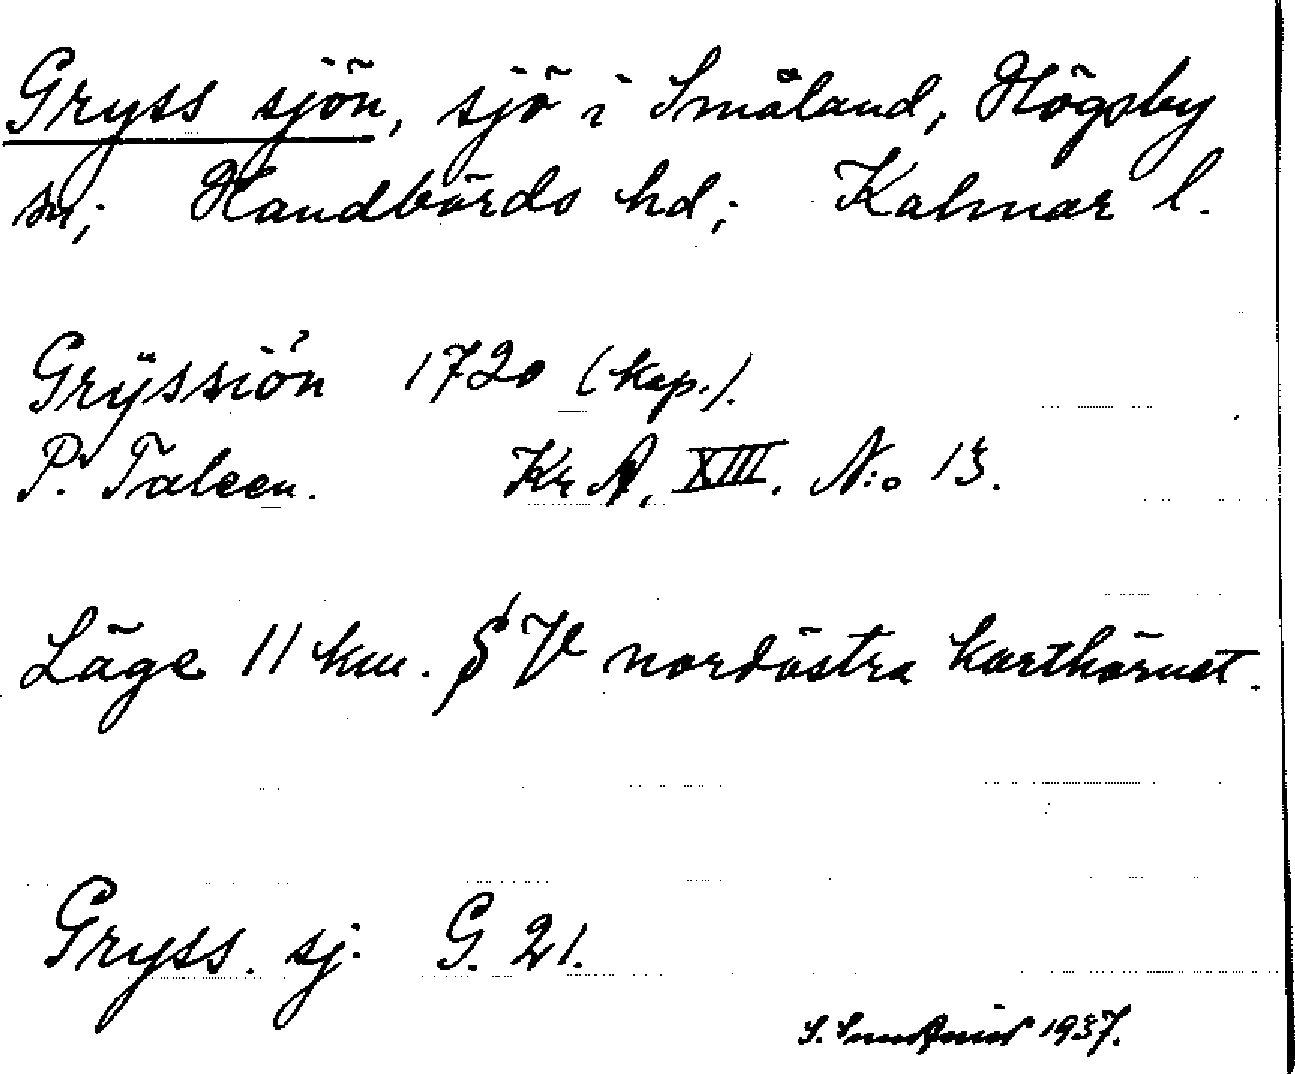 Gryss sjön, sjö i Småland, Högsby
sn; Handbörds hd; Kalmar l.
Grÿssiön 1720 (kop.).
P. Taleen. Kr A. XIII. N:o 13.
Läge 11 km. S V nordöstra karthörnet.
Gryss. sj. G. 21.
S. 1937.